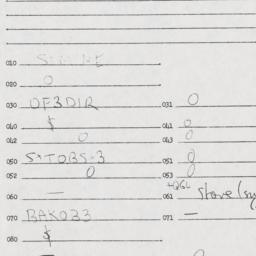 010
020 0
030 OF3DIR 031 0
040 $ 041 0
042 0 043 0
050 S*TOBS-3 051 0
052 0 053 0
060 — 061 store
070 BAK033 071 —
080 $